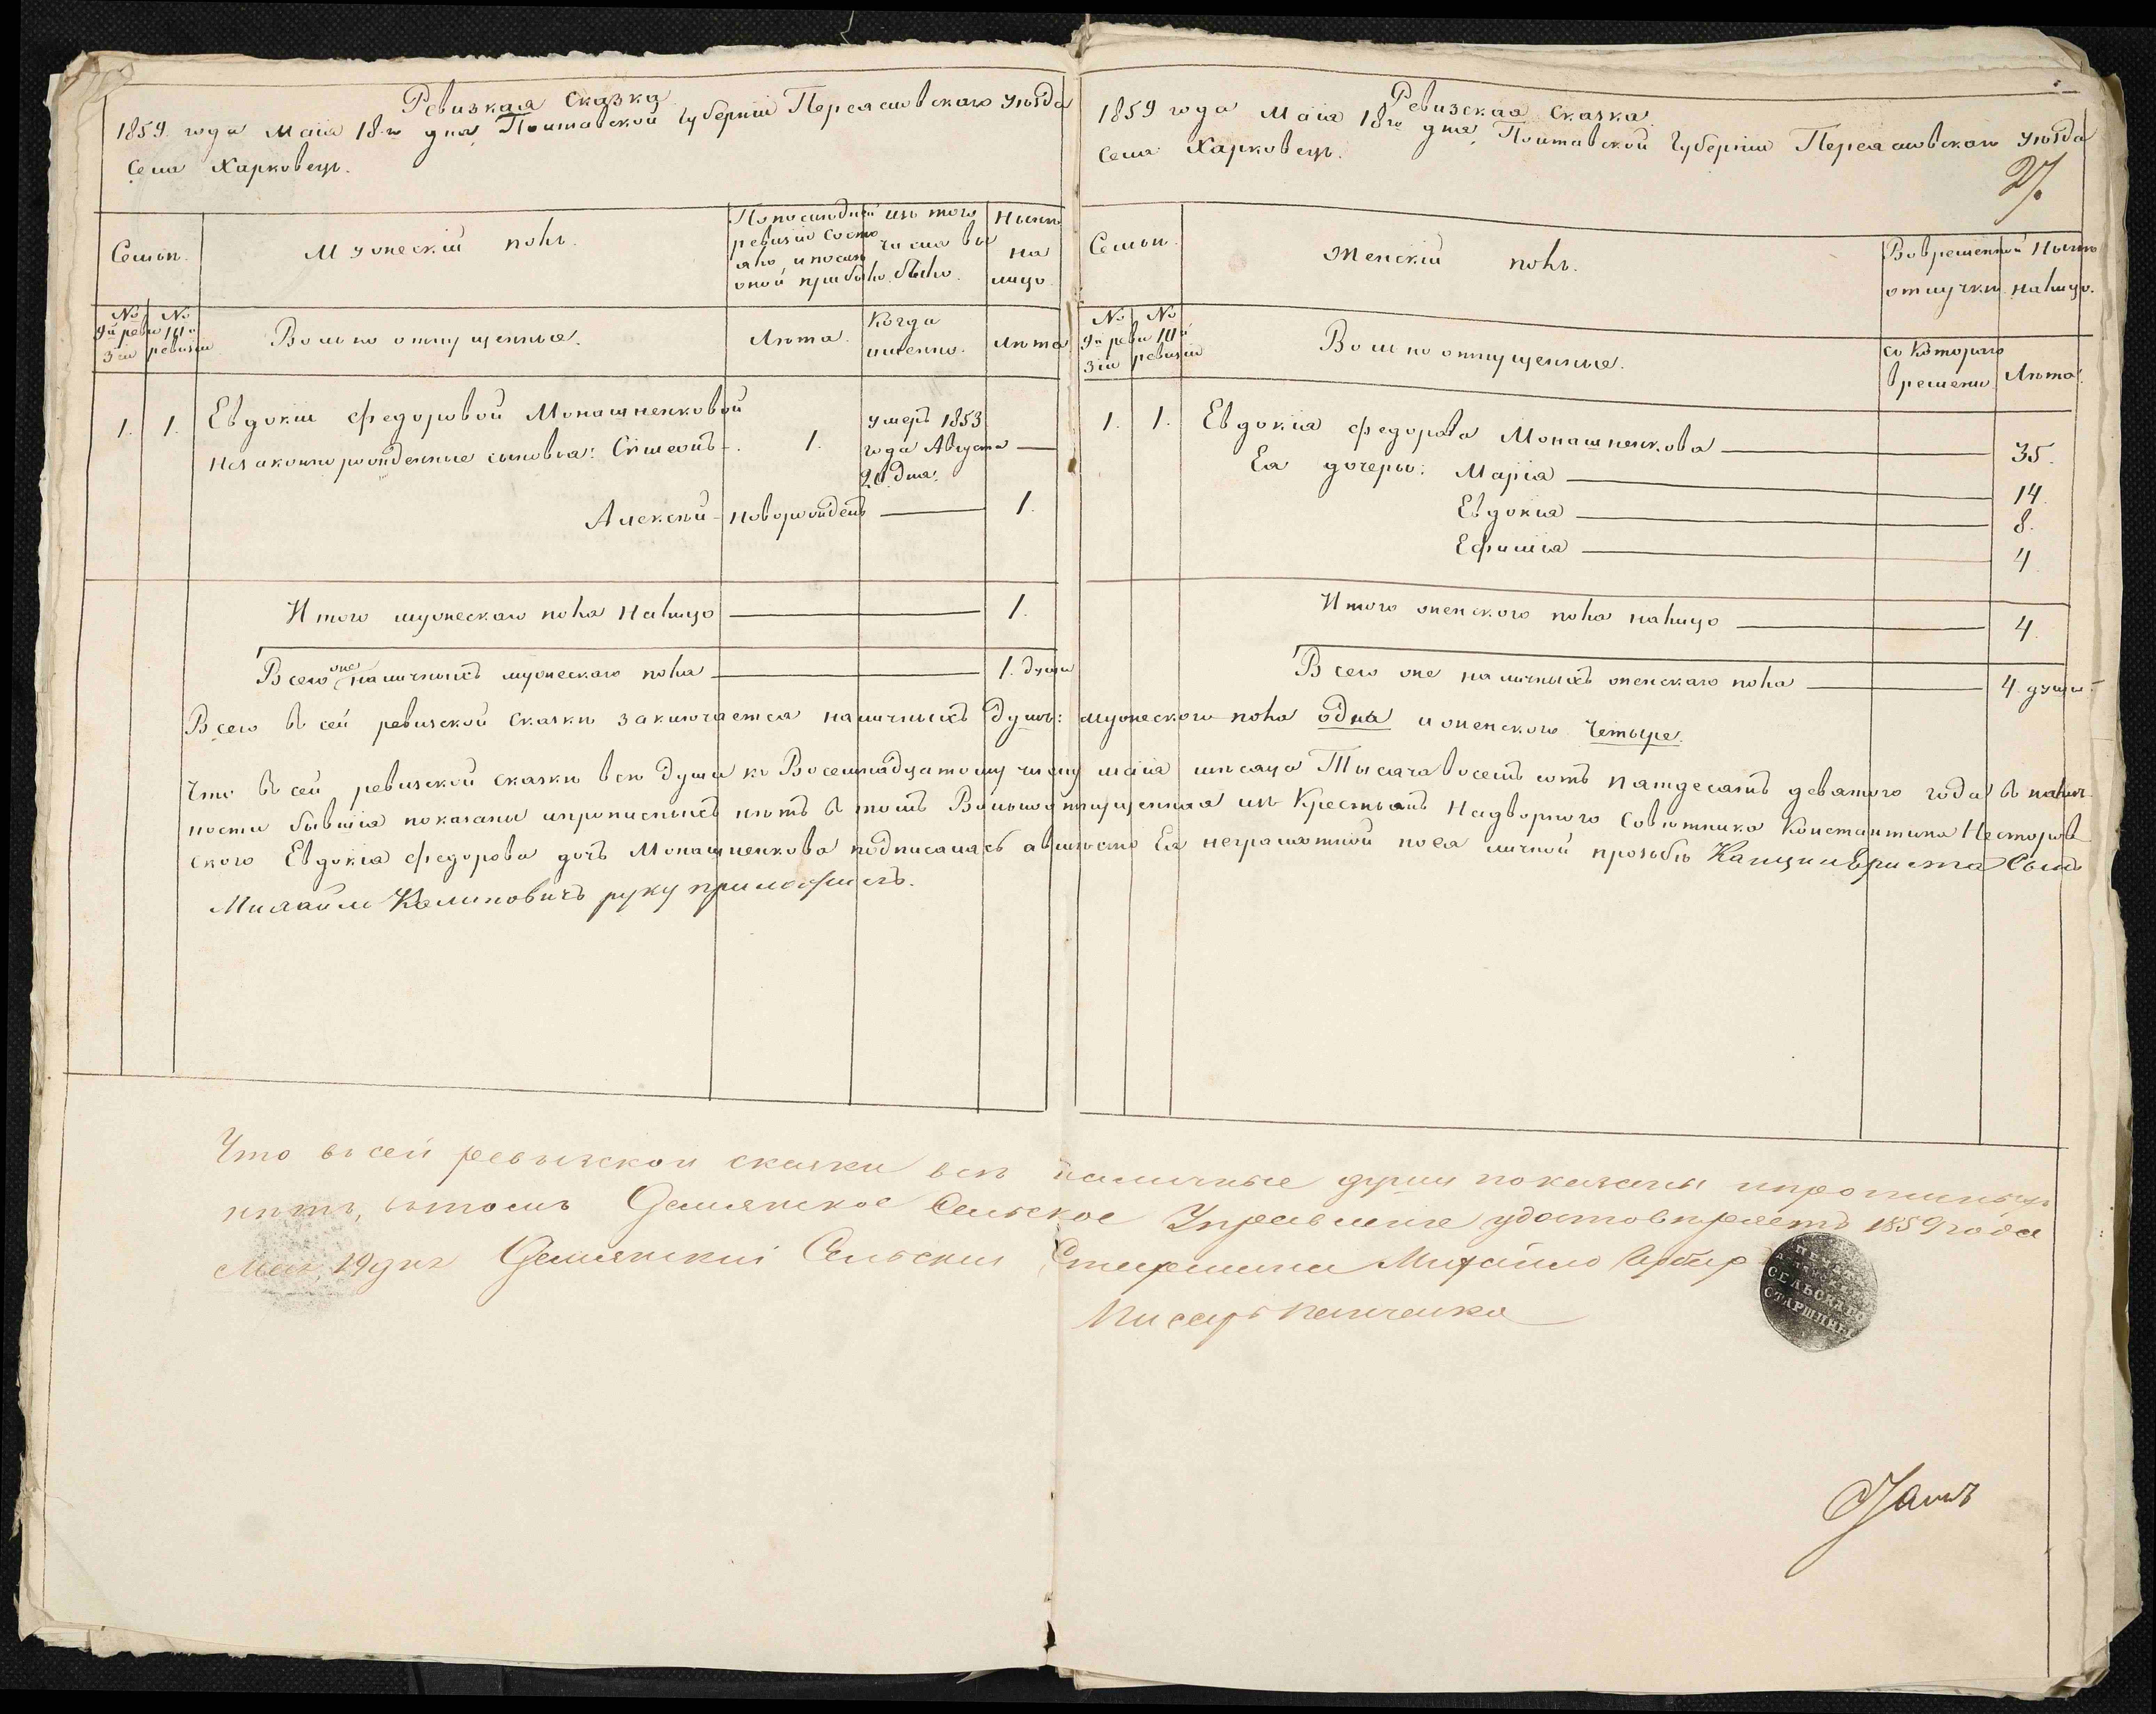 Ревизкая Сказка
1859 года Маія 18-го дня, Полтавской Губерніи Переяславскаго уѣзда
Села Харковецъ.
Семьи.
Мужескій полъ.
По последней ревизіи состояло и после оной прибыло.
изъ того числа выбыло.
Нынѣ на лицо.
№ 9й ревизіи
№ 10й ревизіи
Вольно отпущенныя.
Лѣта.
Когда именно.
Лѣта
1. 1. Евдокіи Федоровой Монашненковой
незаконнорожденные сыновья: Симеонъ 1. умеръ 1853 года Августа 20 дня.
Алексѣй новорожденъ 1.
Итого мужескаго пола налицо 1.
Всего же наличныхъ мужескаго пола 1. душа
Ревизская Сказка.
1859 года Маія 18го дня, Полтавской Губерніи Переяславскаго уѣзда
Села Харковецъ.
27.
Семьи.
Женскій полъ.
Во временной отлучки.
Нынѣ налицо.
№ 9й ревизіи
№ 10й ревизіи
Вольно отпущенные.
съ Котораго времени
Лѣта.
1. 1. Евдокія Федорова Монашненкова 35.
Ея дочеры: Марія 14.
Евдокія 8.
Ефимія 4
Итого женскаго пола налицо 4.
Всего же наличныхъ женскаго пола 4. души.
Всего въ сей ревизской Сказки заключается наличныхъ душъ: мужескаго пола одна и женскаго Четыре.
Что въ сей ревизской сказки всѣ души къ Восемнадцатому числу маія мѣсяца Тысяча восемь сотъ пятдесятъ девятого года въ налич
ности бывшія показаны ипрописныхъ нѣтъ въ томъ Вольноотпущенная изъ Крестьянъ Надворного Совѣтника Константина Несторов
ского Евдокія Федорова дочъ Монашненкова подписалась авмѣсто Ея неграмотной поея личной прозьбѣ Канцеляриста Сынъ
Михайло Калиновичъ руку приложилъ.
Что въ сей ревызской сказки всѣ наличные души показаны ипрописныхъ
нѣтъ, вътомъ Демянское Сельское Управление удостовѣряетъ 1859 года
Мая 19 дня Демянскій Сельский Старшина Михайло
Писарь
СЕЛЬСКАГО
СТАРШИНЫ